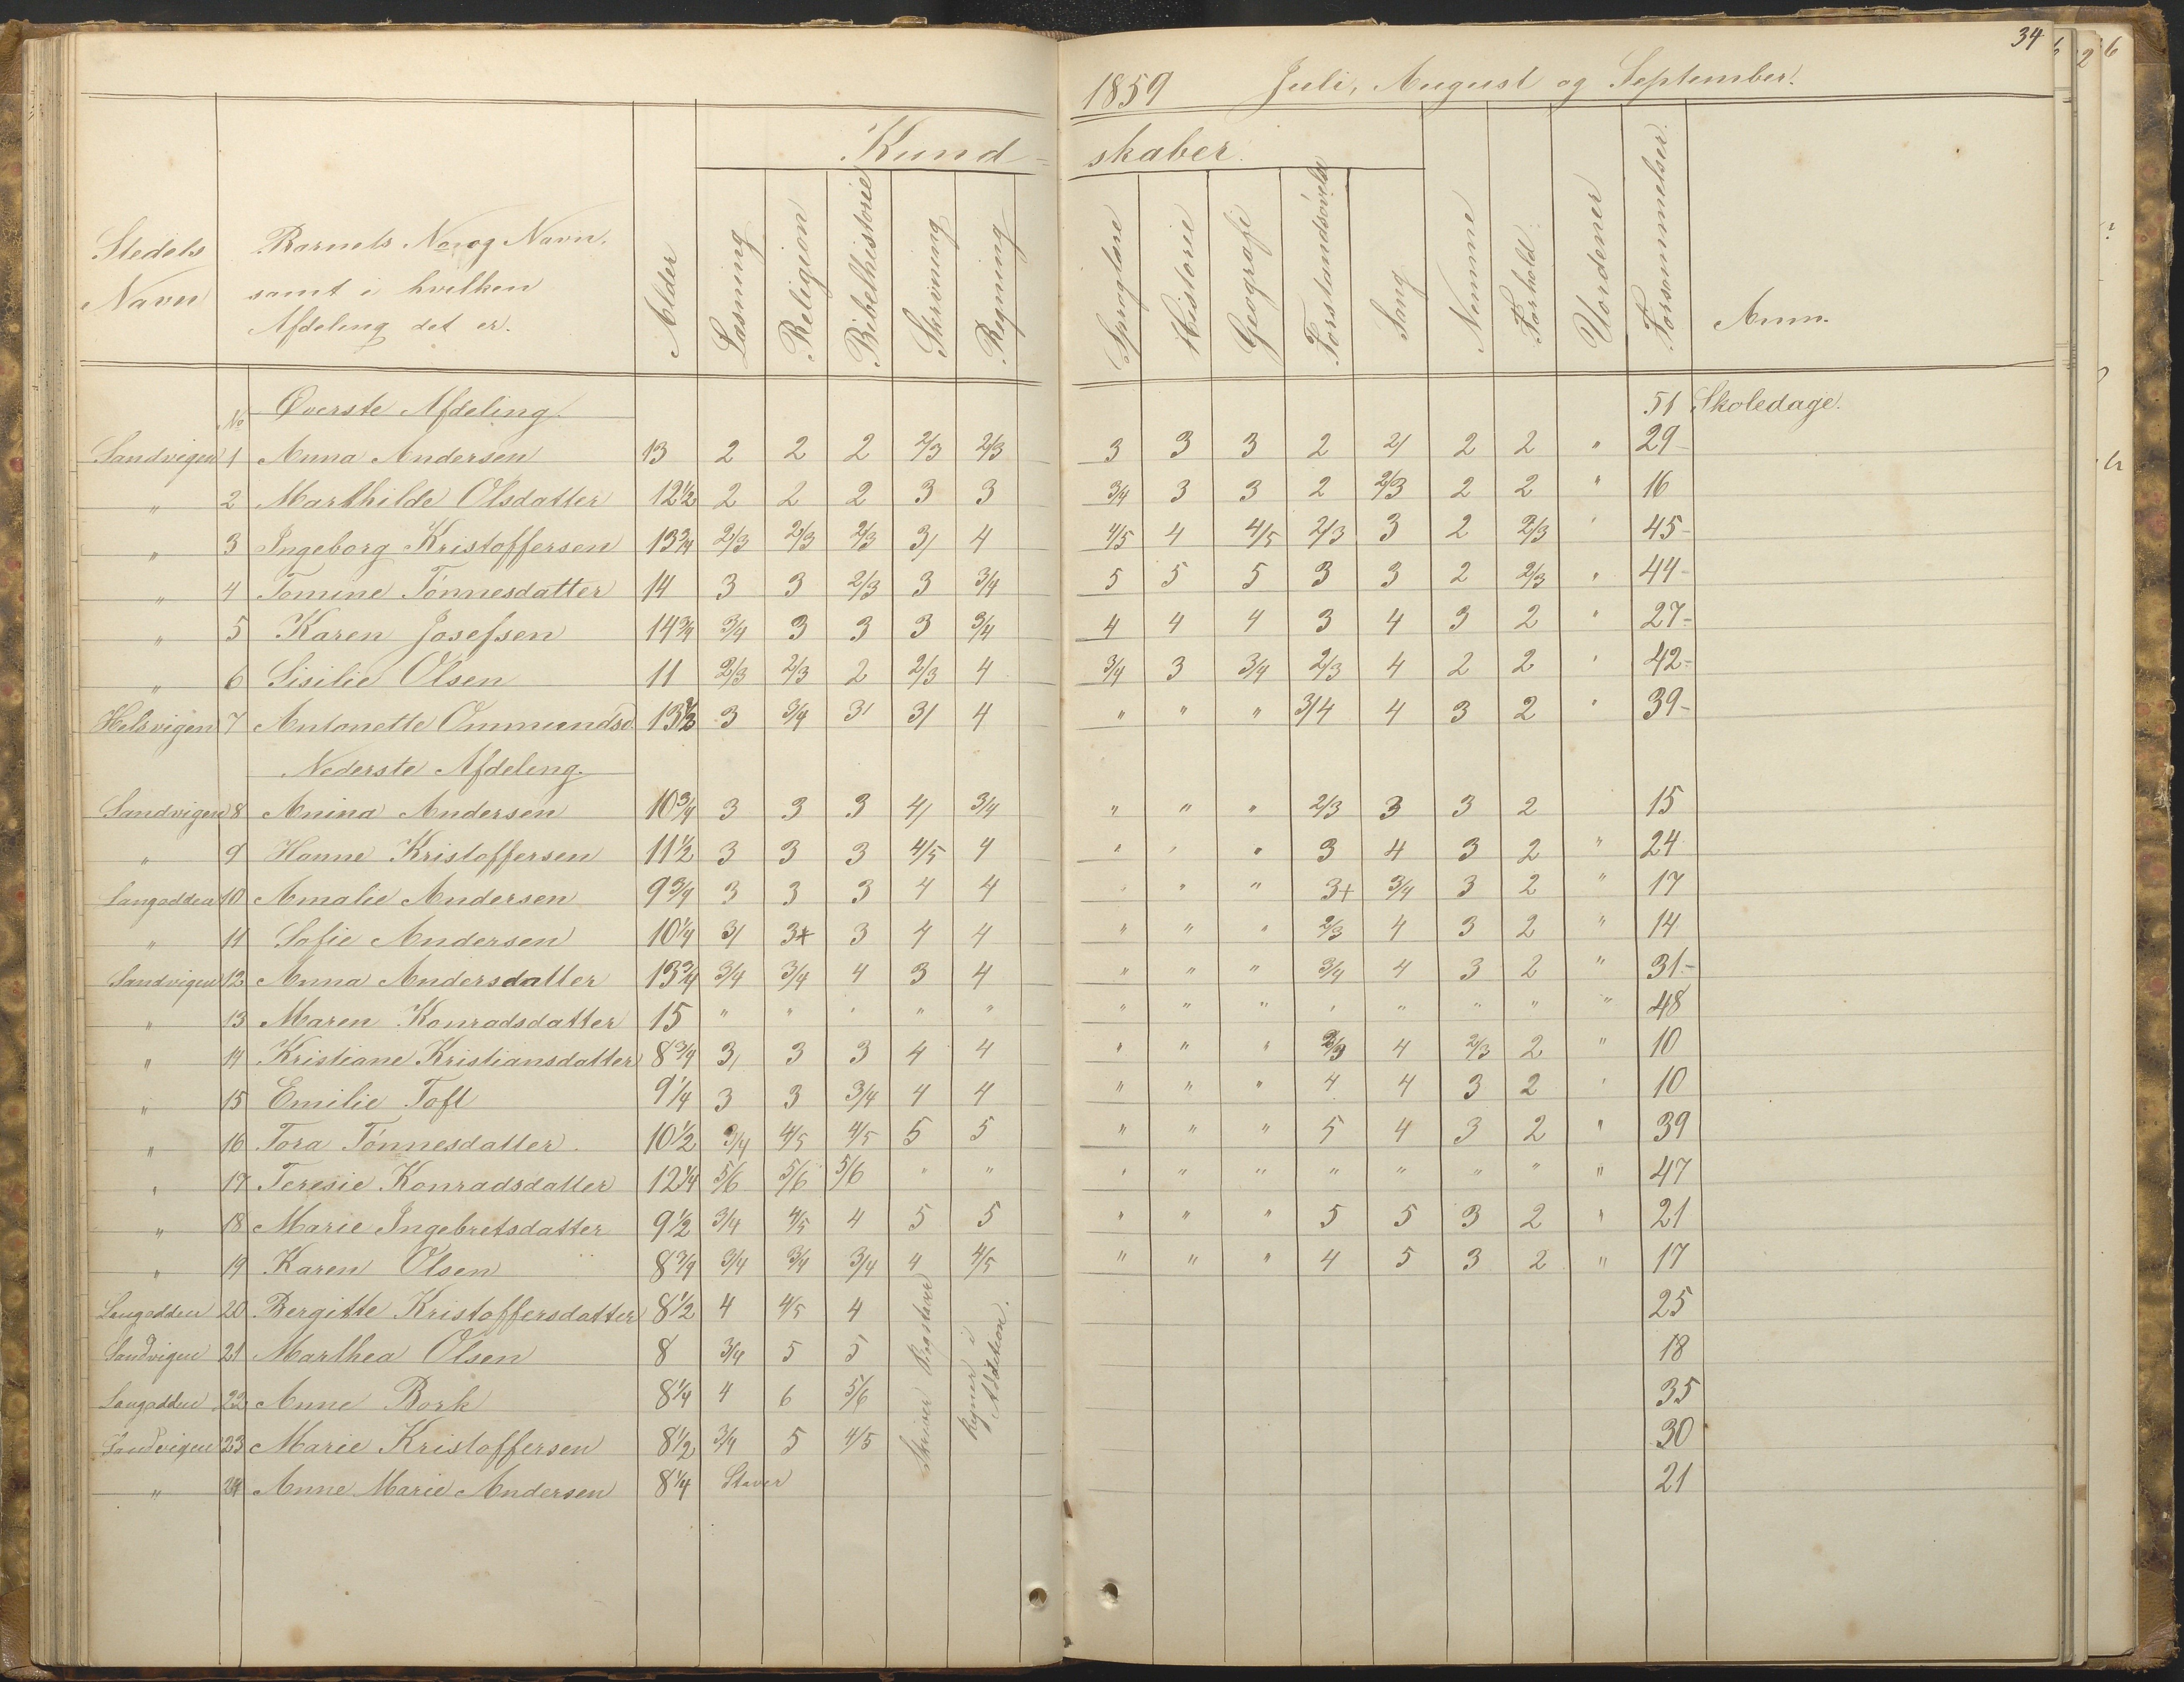 34
1859 Juli, August og September.
Kund- skaber.
Stedets Navn
Barnets No og Navn, samt i hvilken Afdeling det er.
Alder
Læsning
Religion
Bibelhistorie
Skrivning
Regning
Sproglære
Historie
Geografi
Forstandsøvelse
Sang
Nemme
Forhold
Uordener
Forsømmelser
Anm.
No Øverste Afdeling. 51 Skoledage.
Sandvigen 1 Anna Andersen 13 2 2 2 2/3 2/3 3 3 3 2 2/ 2 2 " 29
" 2 Marthilde Olsdatter 12½ 2 2 2 3 3 3/4 3 3 2 2/3 2 2 " 16
" 3 Ingeborg Kristoffersen 13¾ 2/3 2/3 2/3 3/ 4 4/5 4 4/5 2/3 3 2 2/3 " 45
" 4 Tomine Tönnesdatter 14 3 3 2/3 3 3/4 5 5 5 3 3 2 2/3 " 44
" 5 Karen Josefsen 14¾ 3/4 3 3 3 3/4 4 4 4 3 4 3 2 " 27
" 6 Sisilie Olsen 11 2/3 2/3 2 2/3 4 3/4 3 3/4 2/3 4 2 2 " 42
Helsvigen 7 Antonette Ommundsd. 13½ 3 3/4 3/ 3/ 4 " " " 3/4 4 3 2 " 39
Nederste Afdeling.
Sandvigen 8 Anina Andersen 10¾ 3 3 3 4/ 3/4 " " " 2/3 3 3 2 15
" 9 Hanne Kristoffersen 11½ 3 3 3 4/5 4 " " " 3 4 3 2 " 24
Langodden 10 Amalie Andersen 9¾ 3 3 3 4 4 " " " 3+ 3/4 3 2 " 17
" 11 Sofie Andersen 10¼ 3/ 3+ 3 4 4 " " " 2/3 4 3 2 " 14
Sandvigen 12 Anna Andersdatter 13¾ 3/4 3/4 4 3 4 " " " 3/4 4 3 2 " 31
" 13 Maren Konradsdatter 15 " " " " " " " " " " " " " 48
" 14 Kristiane Kristiansdatter 8¾ 3/ 3 3 4 4 " " " 2/3 4 2/3 2 " 10
" 15 Emilie Toft 9¼ 3 3 3/4 4 4 " " " 4 4 3 2 " 10
" 16 Tora Tönnesdatter. 10½ 3/4 4/5 4/5 5 5 " " " 5 4 3 2 " 39
" 17 Teresie Konradsdatter 12¼ 5/6 5/6 5/6 " " " " " " " " " " 47
" 18 Marie Ingebretsdatter 9½ 3/4 4/5 4 5 5 " " " 5 5 3 2 " 21
" 19 Karen Olsen 8¾ 3/4 3/4 3/4 4 4/5 " " " 4 5 3 2 " 17
Langodden 20 Bergitte Kristoffersdatter 8½ 4 4/5 4 25
Sandvigen 21 Marthea Olsen 8 3/4 5 5 18
Langodden 22 Anne Bork 8¼ 4 6 5/6 35
Sandvigen 23 Marie Kristoffersen 8½ 3/4 5 4/5 30
" 24 Anne Marie Andersen 8¼ Staver 21
Skriver Bogstaver
Regner i Addition.